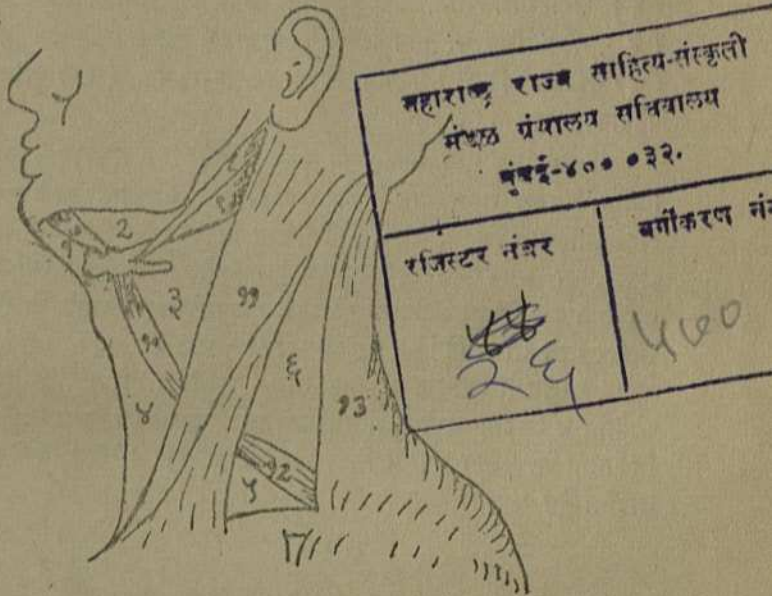 महाराष्ट्र राज्य साहित्य-संस्कृती
मंडळ ग्रंथालय सचिवालय
मुंबई-४०० ०३२.
रजिस्टर नंबर
वर्गीकरण नं
२६
५००
२
३
११
१०
४
६
१३
१२
५